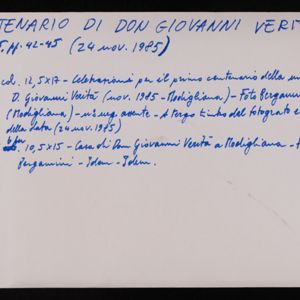 TENARIO DI DON GIOVANNI VERI
.M. 42-45 (24 nov. 1985)
col. 12,5x17 - Celebrazioni per il primo centenario della m
D. Giovanni Verità (nov. 1985 - Modigliana) - Foto Bergamin
(Modigliana) - n's neg. assente - A tergo timbro del fotografo e
della data (24 nov. 1985)
10,5x15 - Casa di Don Giovanni Verità a Modigliana -
Bergamini - Idem - Idem.